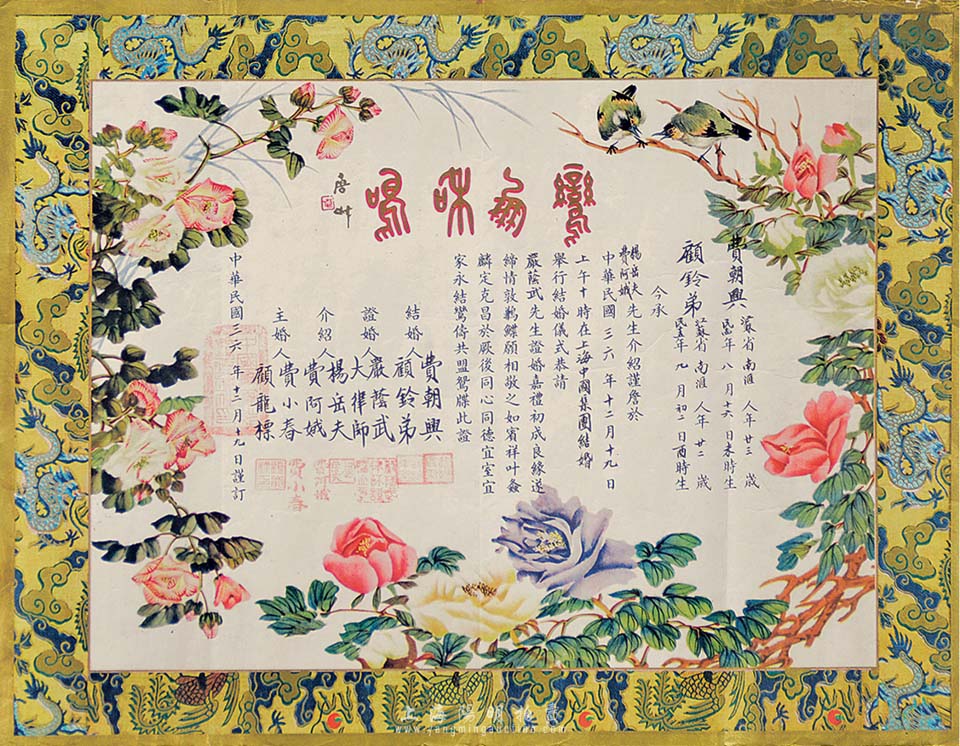 鸞鳳和鳴
費朝興
蘇省南滙人年廿三歲
年八月十六日未時生
顧鈴弟
蘇省南滙人年廿二歲
年九月初二日酉時生
今承
楊岳夫
費阿娥
先生介紹謹詹於
中華民國三六年十二月十九日
上午十時在上海中國集團結婚
舉行結婚儀式恭請
嚴蔭武先生證婚嘉禮初成良緣遂
締情敦鶼鰈願相敬之如賓祥叶螽
麟定克昌於厥後同心同德宜室宜
家永結鸞儔共盟鴛牒此證
結婚人
費朝興
顧鈴弟
證婚人
大律師
嚴蔭武
介紹人
楊岳夫
費阿娥
主婚人
費小春
顧龍標
中華民國三六年十二月十九日謹訂
上海陽明拍賣